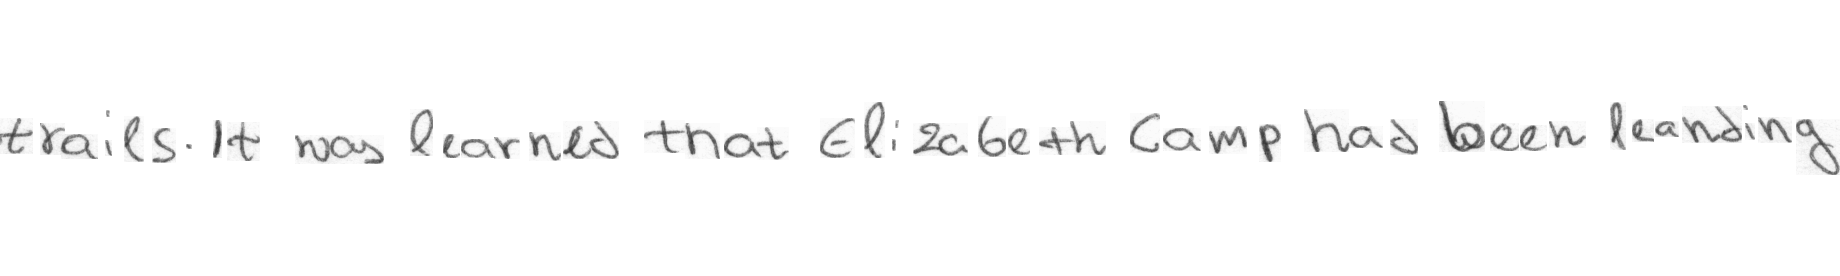 trails. It was learned that Elizabeth Camp had been leanding